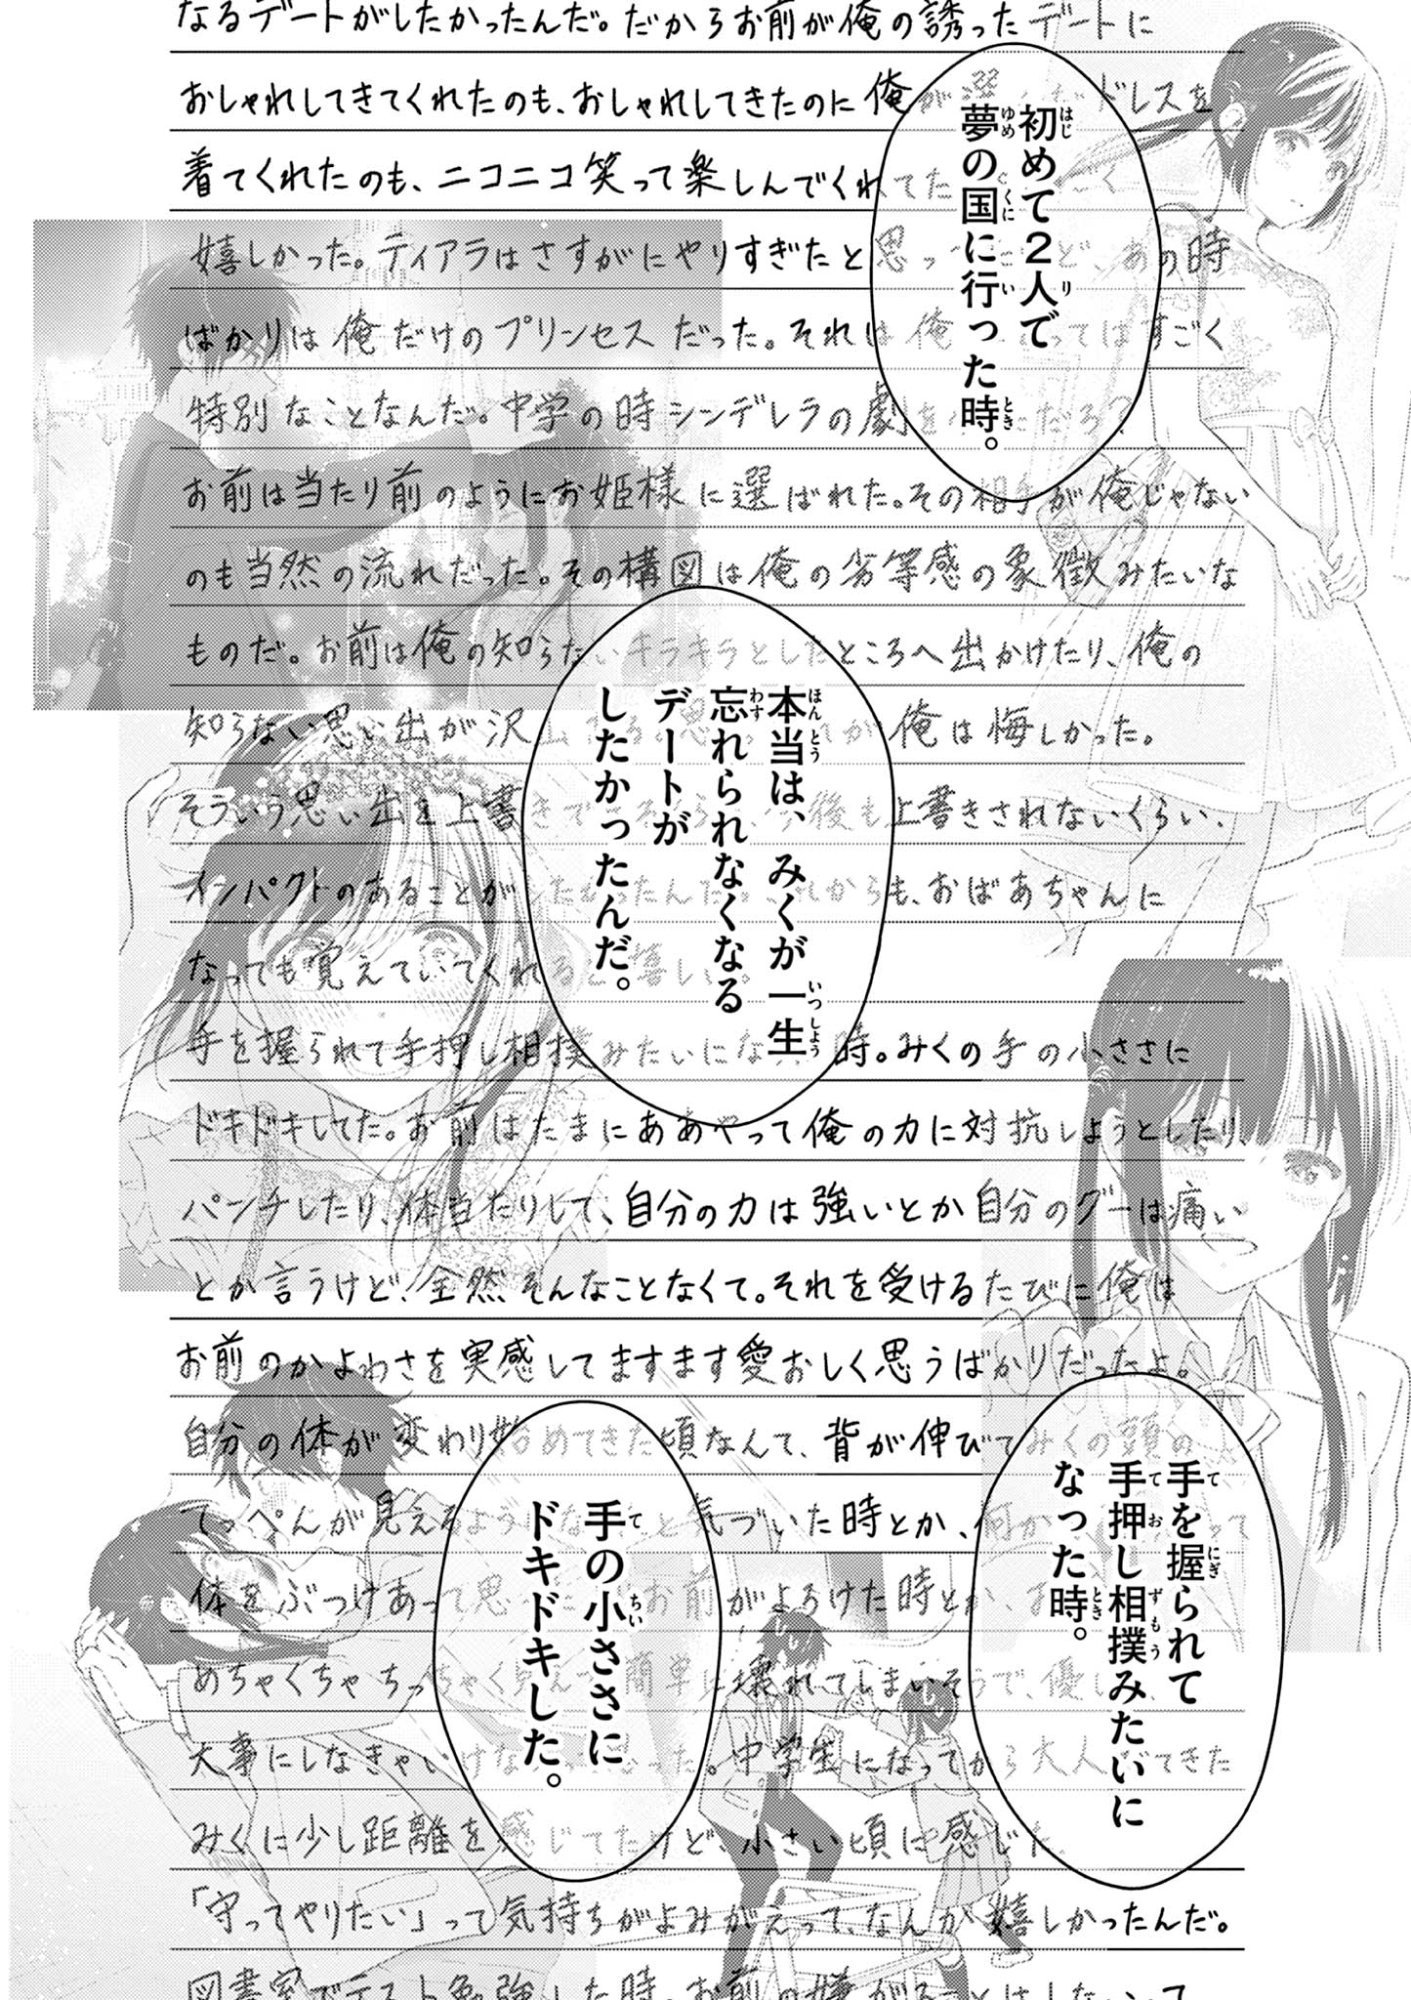 初めて２人で
夢の国に行った時。
本当は、みくが一生
忘れられなくなる
デートが
したかったんだ。
手を握られて
手押し相撲みたいに
なった時。
手の小ささに
ドキドキした。
なるデートがしたかったんだ。だからお前が俺の誘ったデートに
おしゃれしてきてくれたのも、おしゃれしてきたのに俺が選んだドレスを
着てくれたのも、ニコニコ笑って楽しんでくれてた
嬉しかった。ティアラはさすがにやりすぎたと思っ あの時
ばかりは俺だけのプリンセスだった。それは俺 ってはすごく
特別なことなんだ。中学の時シンデレラの劇を だろ？
お前は当たり前のようにお姫様に選ばれた。その相手が俺じゃない
のも当然の流れだった。その構図は俺の劣等感の象徴みたいな
ものだ。お前は俺の知らないキラキラとしたところへ出かけたり、俺の
知らない思い出が沢山 俺は悔しかった。
そういう思い出を上書き 今後も上書きされないくらい、
インパクトのあることがしたかったんだ。これからも、おばあちゃんに
なっても覚えていてくれると嬉しい。
手を握られて手押し相撲みたいにな 時。みくの手の小ささに
ドキドキしてた。お前はたまにああやって俺の力に対抗しようとしたり
パンチしたり、体当たりして、自分の力は強いとか自分のグーは痛い
とか言うけど、全然そんなことなくて。それを受けるたびに俺は
お前のかよわさを実感してますます愛おしく思うばかりだったよ。
自分の体が変わり始めてきた頃なんて、背が伸びてみくの頭の
てっぺんが見えるようになったと気づいた時とか、何か って
体をぶつけあって思 お前がよろけた時とか、お
めちゃくちゃちっちゃく見えて簡単に壊れてしまいそうで、優しく
大事にしなきゃいけないと思った。中学生になってから大人 てきた
みくに少し距離を感じてたけど、小さい頃に感じた
「守ってやりたい」って気持ちがよみがえって、なんか嬉しかったんだ。
図書室でテスト勉強した時、お前の嫌がることはしないって